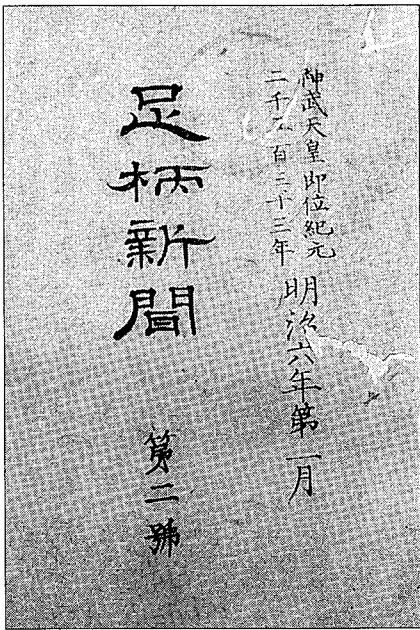 神武天皇即位紀元
二千五百三十三年
明治六年第一月
足柄新聞
第二號